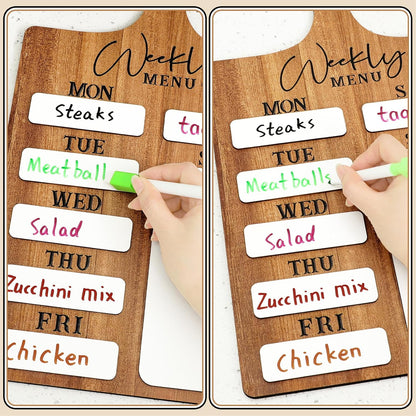 Weekly
MENU
MON
Steaks
ta
TUE
Meatball
WED
Salad
THU
Zucchini mix
FRI
Chicken
Weekly
MENU
MON
S
Steaks
tac
TUE
Meatballs
WED
Salad
THU
Zucchini mix
FRI
Chicken